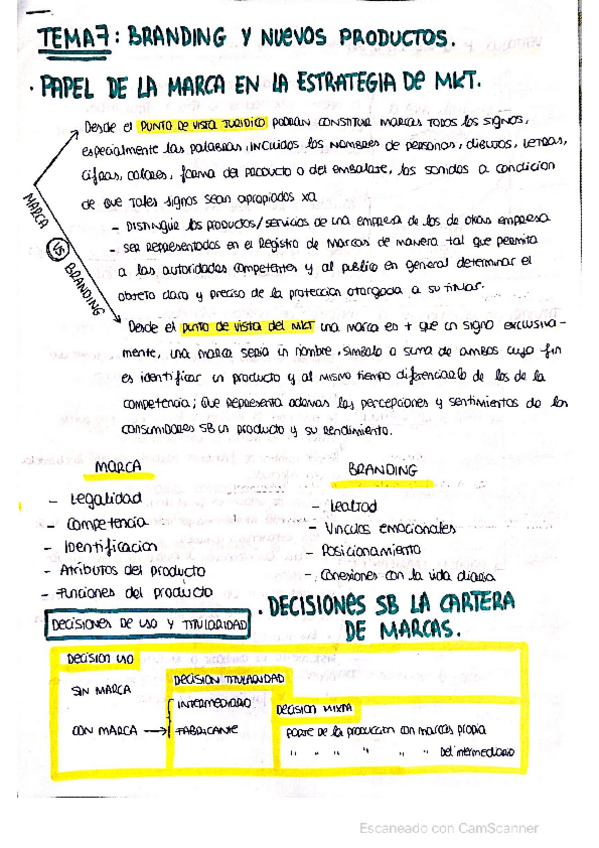 TEMA 7: BRANDING Y NUEVOS PRODUCTOS.
· PAPEL DE LA MARCA EN LA ESTRATEGIA DE MKT.
Desde el PUNTO DE VISTA JURIDICO PODRÁN CONSTITUIR MARCAS TODOS los SIGNOS,
especialmente las palabras, incluidos los nombres de personas, dibujos, letras,
cifras, colores, forma del producto o del embalaje, los sonidos a condicion
de que tales signos sean apropiados xa
MARCA VS BRANDING
- DISTINGUIR los productos/servicios de una empresa de los de otras empresa
- SER Representados en el Registro de Marcas de manera tal que permita
a las autoridades competentes y al publico en general determinar el
objeto claro y preciso de la proteccion otorgada a su titular.
Desde el punto de vista del MKT una marca es + que un signo exclusiva-
mente, una marca seria un nombre, simbolo a suma de ambos cuyo fin
es identificar un producto y al mismo tiempo diferenciarlo de los de la
competencia; que representa ademas las percepciones y sentimientos de los
consumidores SB un producto y su rendimiento.
MARCA
- Legalidad
- Competencia
- Identificacion
- Atributos del producto
- Funciones del producto
BRANDING
- Lealtad
- Vinculos emocionales
- Posicionamiento
- Conexiones con la vida diaria
DECISIONES DE USO Y TITULARIDAD
· DECISIONES SB LA CARTERA
DE MARCAS.
DECISION USO
SIN MARCA
CON MARCA
DECISION TITULARIDAD
INTERMEDIARIO
FABRICANTE
DECISION MIXTA
parte de la produccion con marcas propia
" " " " " " Del intermediario
Escaneado con CamScanner